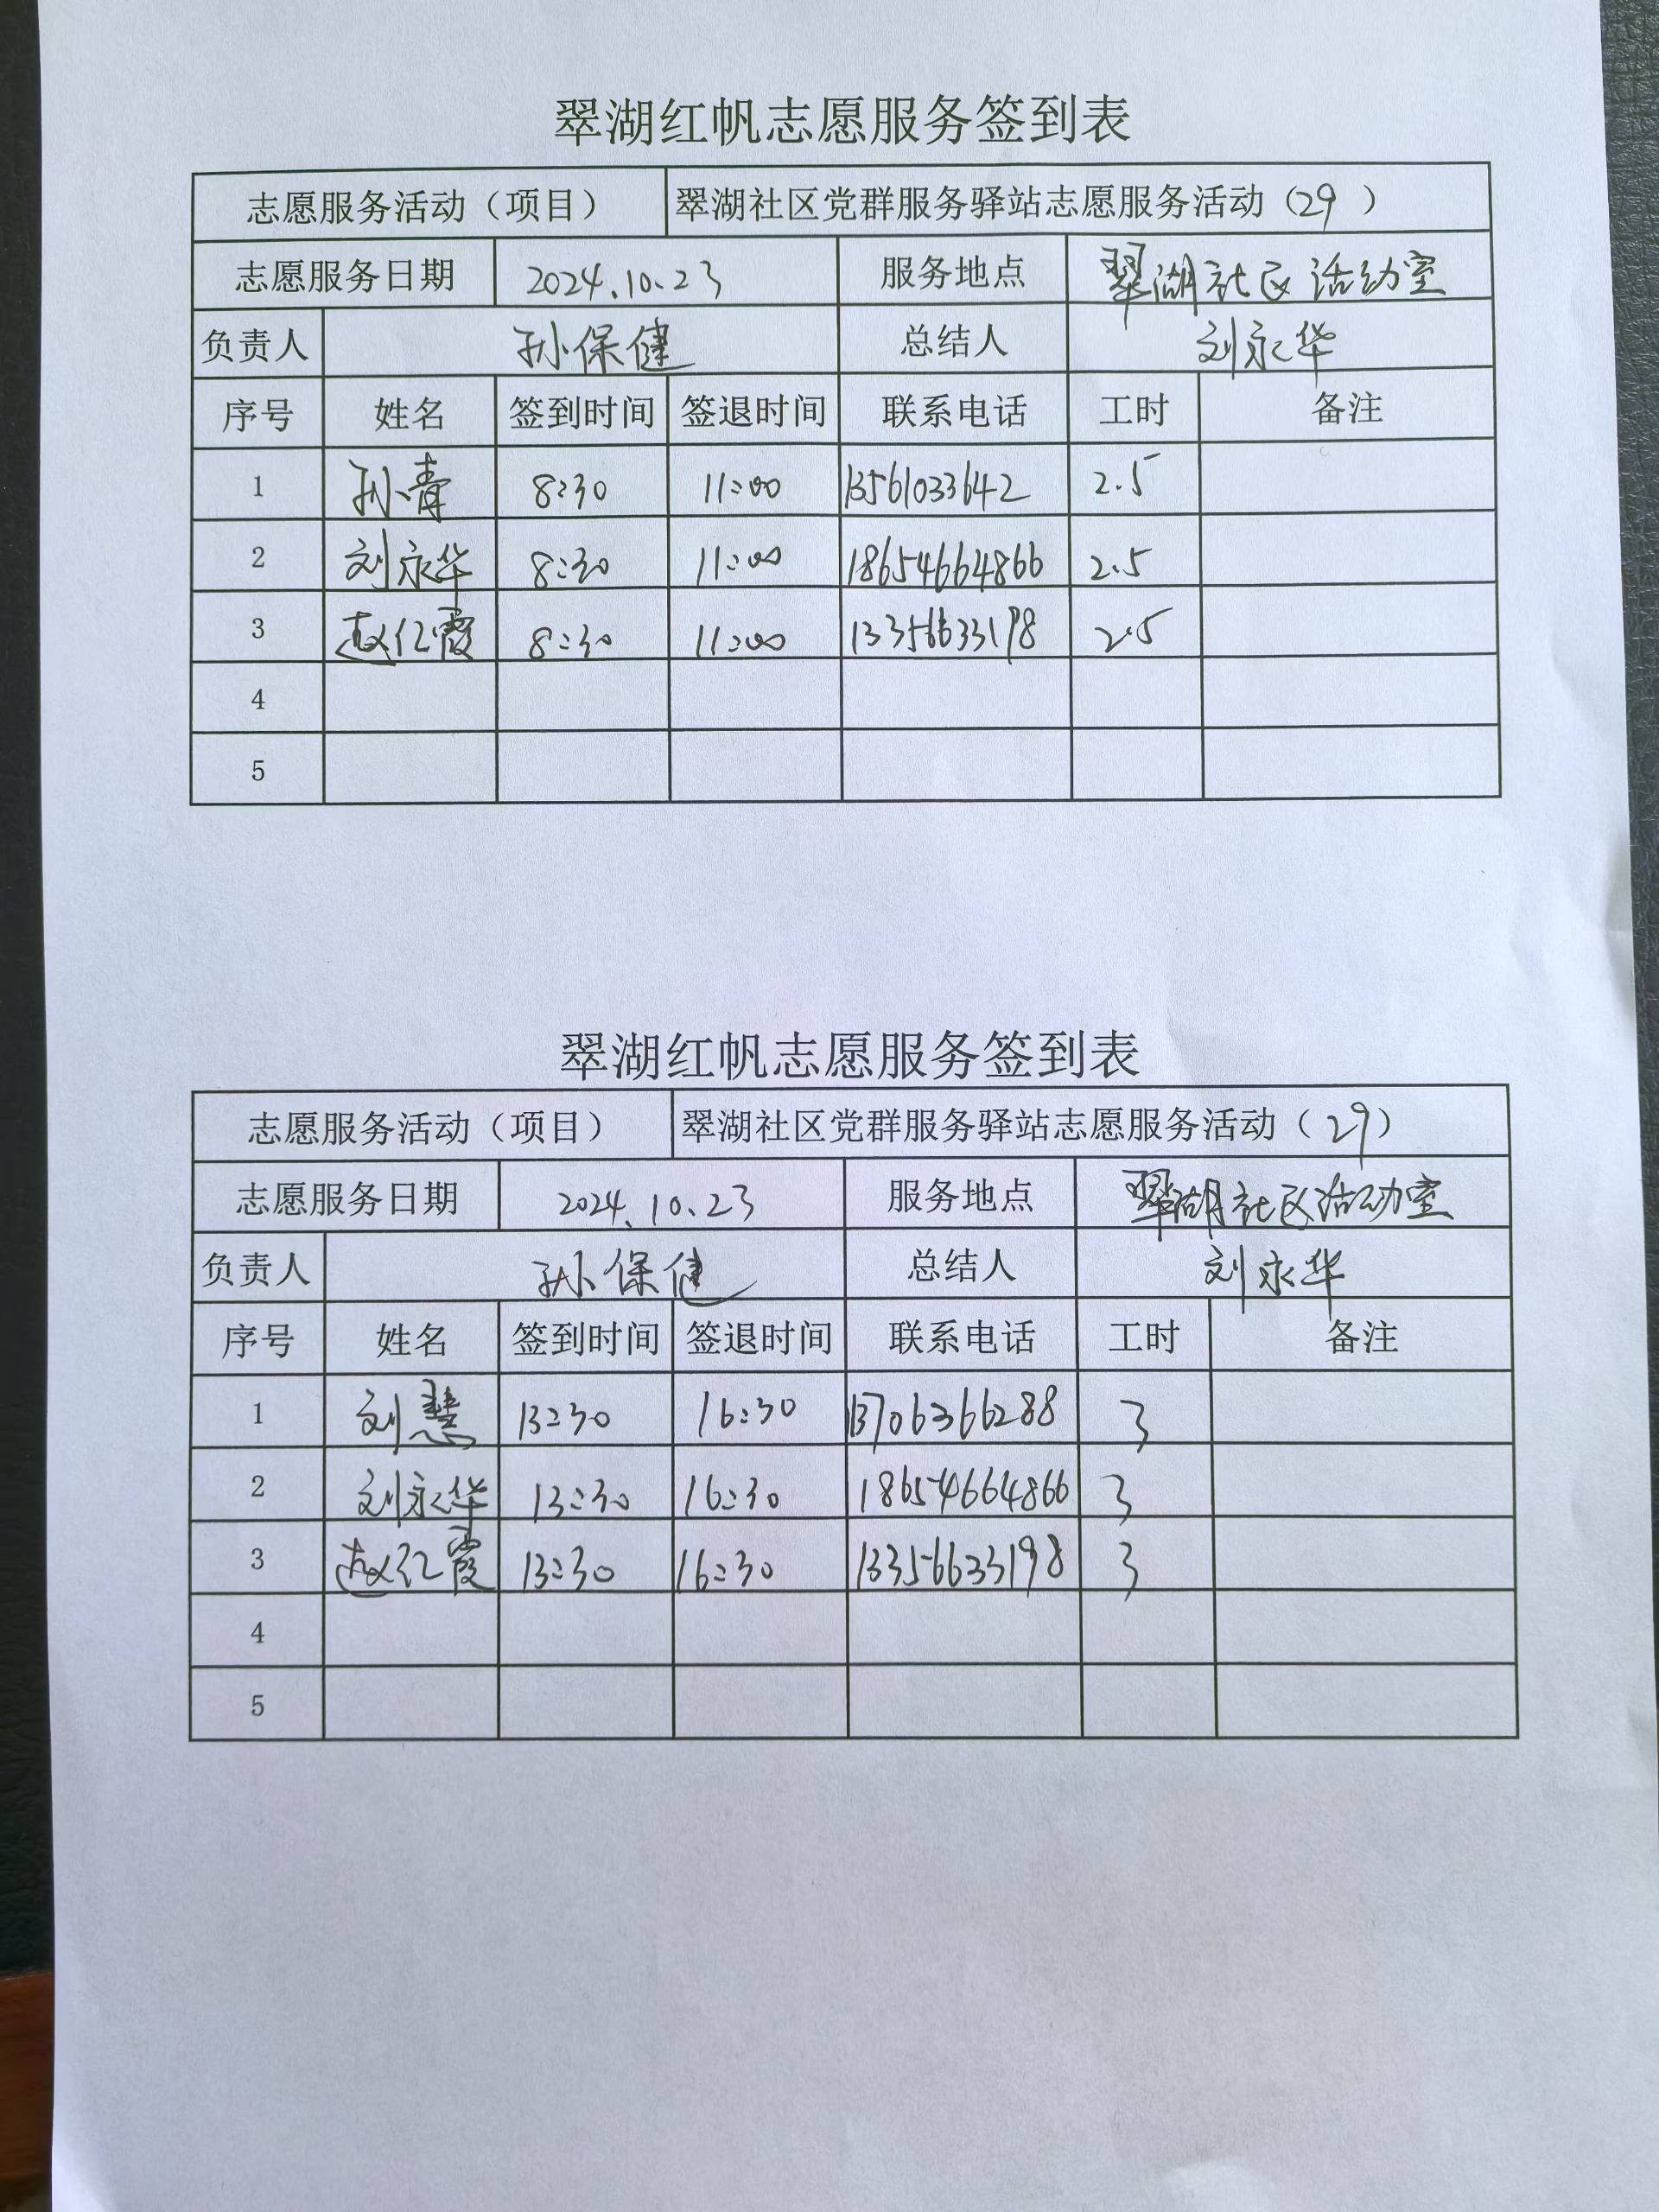 翠湖红帆志愿服务签到表
志愿服务活动（项目） 翠湖社区党群服务驿站志愿服务活动（29）
志愿服务日期 2024.10.23 服务地点 翠湖社区活动室
负责人 孙保健 总结人 刘永华
序号 姓名 签到时间 签退时间 联系电话 工时 备注
1 孙青 8:30 11:00 13561033642 2.5
2 刘永华 8:30 11:00 18654664866 2.5
3 赵红霞 8:30 11:00 13356633198 2.5
4
5
翠湖红帆志愿服务签到表
志愿服务活动（项目） 翠湖社区党群服务驿站志愿服务活动（29）
志愿服务日期 2024.10.23 服务地点 翠湖社区活动室
负责人 孙保健 总结人 刘永华
序号 姓名 签到时间 签退时间 联系电话 工时 备注
1 刘慧 13:30 16:30 13706366288 3
2 刘永华 13:30 16:30 18654664866 3
3 赵红霞 13:30 16:30 13356633198 3
4
5